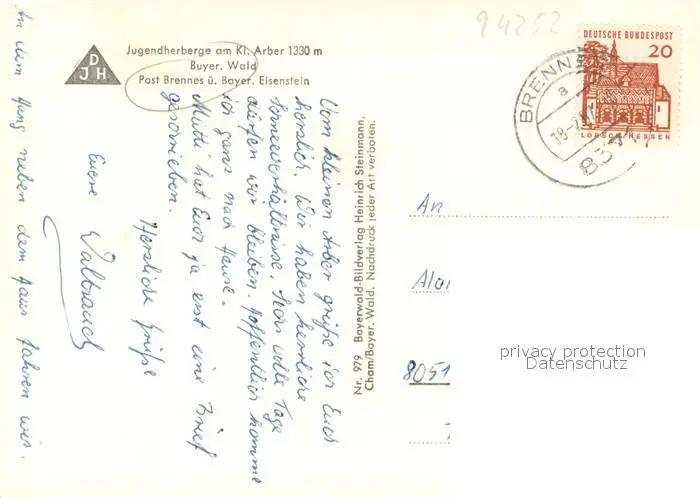 94252
DJH
Jugendherberge am Kl. Arber 1330 m
Buyer. Wald
Post Brennes ü. Bayer. Eisenstein
DEUTSCHE BUNDESPOST
20
LORSCH/HESSEN
BRENNES
a
18-
8371
Vom kleinen Arber grüße ich Euch
herzlich. Wir haben herrliche
Schneeverhältnisse. volle Tage
dürfen wir bleiben. Hoffentlich komme
ich ganz nach Hause.
Mutti hat Euch ja erst eine Brief
geschrieben.
Herzliche Grüße
Euere Waltraud
An dem Hang neben dem Haus fahren wir.
Nr. 979 Bayerwald-Bildverlag Heinrich Steinmann,
Cham/Bayer. Wald. Nachdruck jeder Art verboten.
An
8051
privacy protection
Datenschutz